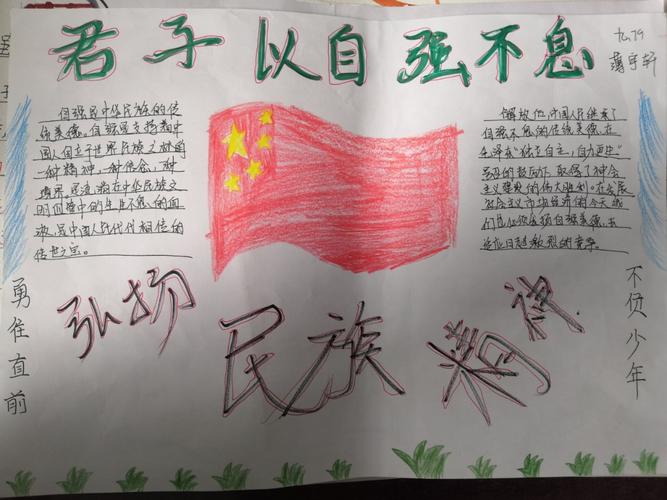 君子以自强不息
自强是中华民族的传
统美德。自强是支撑着中
国人自立于世界民族之林的
一种精神，一种信念，一种
境界。是流淌在中华民族
的血液中的生生不息的血
液，是中国人民代代相传的
传世之宝。
解放后，中国人民继承了
自强不息的传统美德，在
毛泽东“独立自主，自力更生”
号召的鼓励下，取得了社会
主义建设的伟大胜利。在发展
社会主义市场经济的今天，我
们
日趋激烈的竞争
弘扬
民族
精神
勇往直前
不负少年